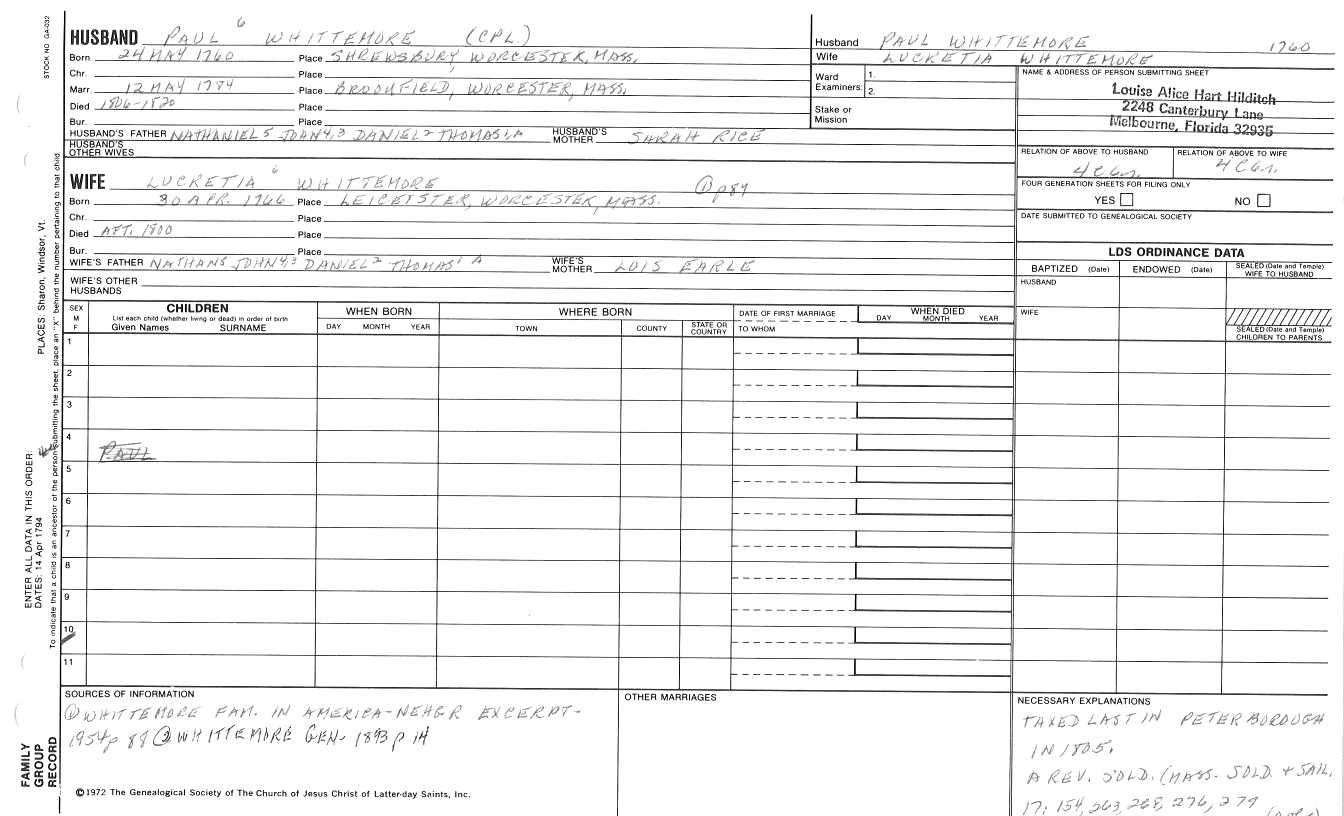 STOCK NO GA-032
HUSBAND PAUL 6 WHITTEMORE (CPL)
Born 24 MAY 1760 Place SHREWSBURY, WORCESTER, MASS.
Chr. Place
Marr. 12 MAY 1784 Place BROOKFIELD, WORCESTER, MASS.
Died 1806-1820 Place
Bur. Place
HUSBAND'S FATHER NATHANIEL 5 JOHN 4,3 DANIEL 2 THOMAS 1,A HUSBAND'S MOTHER SARAH RICE
HUSBAND'S OTHER WIVES
WIFE LUCRETIA 6 WHITTEMORE ① p84
Born 30 APR. 1766 Place LEICESTER, WORCESTER, MASS.
Chr. Place
Died AFT. 1800 Place
Bur. Place
WIFE'S FATHER NATHAN 5 JOHN 4,3 DANIEL 2 THOMAS 1 A WIFE'S MOTHER LOIS EARLE
WIFE'S OTHER HUSBANDS
Husband PAUL WHITTEMORE 1760
Wife LUCRETIA WHITTEMORE
Ward Examiners: 1.
2.
Stake or Mission
NAME & ADDRESS OF PERSON SUBMITTING SHEET
Louise Alice Hart Hilditch
2248 Canterbury Lane
Melbourne, Florida 32935
RELATION OF ABOVE TO HUSBAND RELATION OF ABOVE TO WIFE
4 C 6 4 C 6
FOUR GENERATION SHEETS FOR FILING ONLY
YES NO
DATE SUBMITTED TO GENEALOGICAL SOCIETY
LDS ORDINANCE DATA
BAPTIZED (Date) ENDOWED (Date) SEALED (Date and Temple) WIFE TO HUSBAND
HUSBAND
WIFE
SEALED (Date and Temple) CHILDREN TO PARENTS
SEX M F
CHILDREN
List each child (whether living or dead) in order of birth
Given Names SURNAME
WHEN BORN
DAY MONTH YEAR
WHERE BORN
TOWN COUNTY STATE OR COUNTRY
DATE OF FIRST MARRIAGE
TO WHOM
WHEN DIED
DAY MONTH YEAR
1
2
3
4
PAUL
5
6
7
8
9
10
11
ENTER ALL DATA IN THIS ORDER:
DATES: 14 Apr 1794 PLACES: Sharon, Windsor, Vt.
To indicate that a child is an ancestor of the person submitting the sheet, place an "X" behind the number pertaining to that child
FAMILY GROUP RECORD
SOURCES OF INFORMATION
① WHITTEMORE FAM. IN AMERICA-NEHGR EXCERPT-
1954 p 88 ② WHITTEMORE GEN- 1893 p 14
©1972 The Genealogical Society of The Church of Jesus Christ of Latter-day Saints, Inc.
OTHER MARRIAGES
NECESSARY EXPLANATIONS
TAXED LAST IN PETERBOROUGH
IN 1805.
A REV. SOLD. (MASS. SOLD. + SAIL.
17: 154, 263, 268, 276, 279